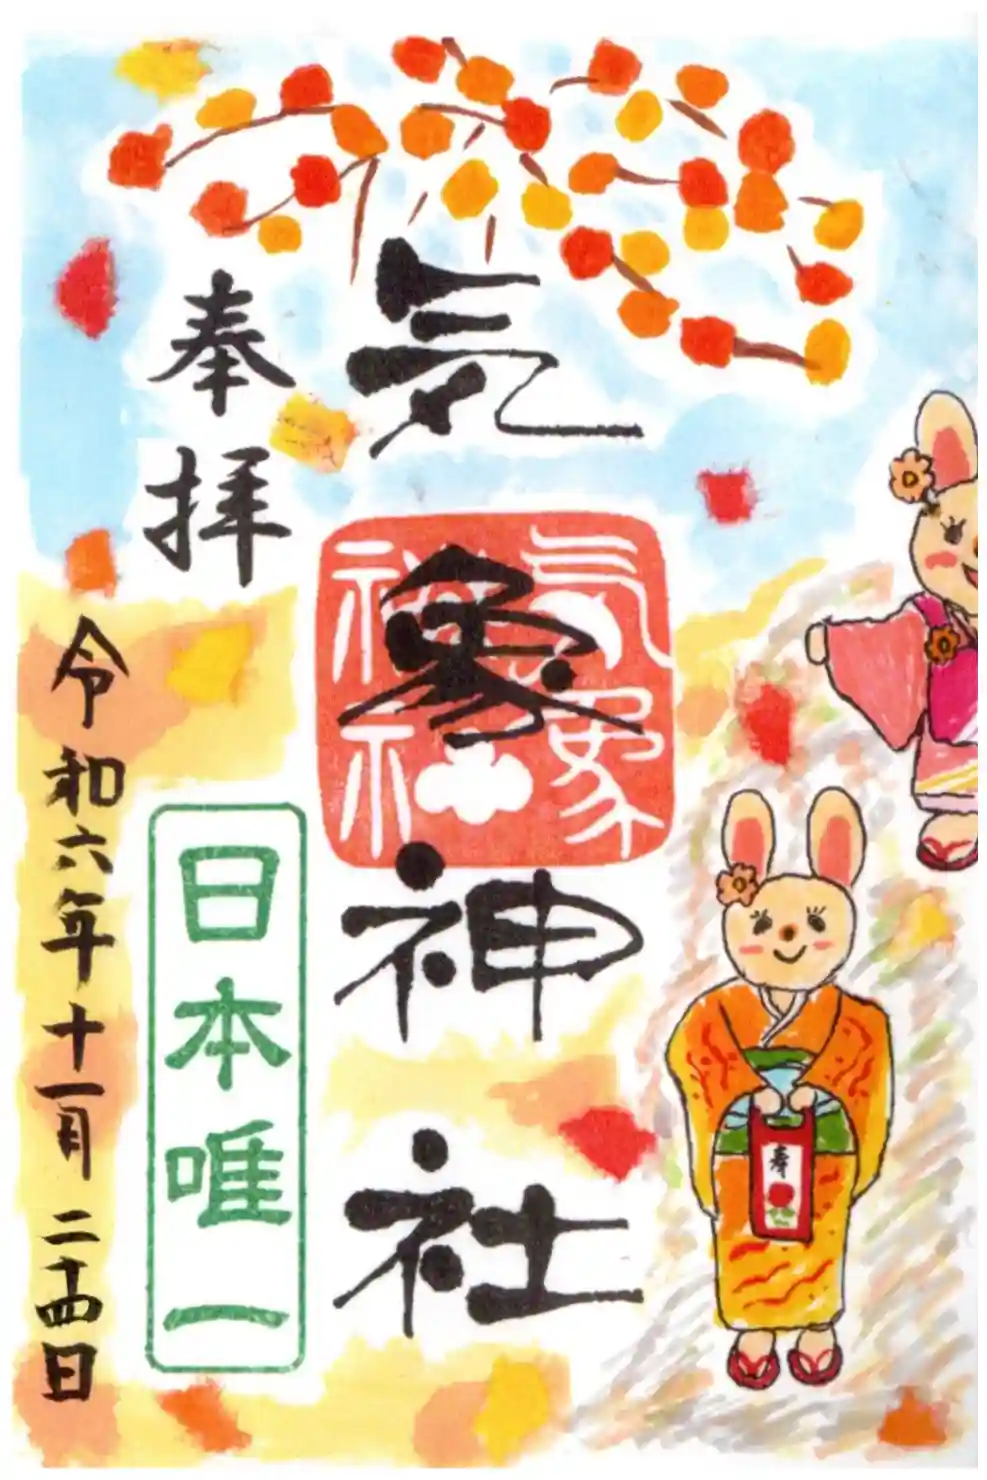 気象神社
気象
神社
奉拝
日本唯一
令和六年十一月二十四日
寿